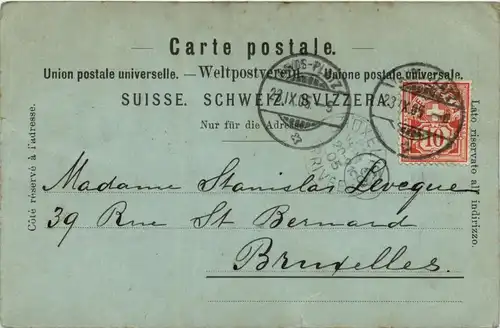 Carte postale.
Union postale universelle. — Weltpostverein. — Unione postale universale.
SUISSE. SCHWEIZ. SVIZZERA.
Nur für die Adresse.
Côté réservé à l'adresse.
Lato riservato all' indirizzo.
DAVOS-PLATZ
22.IX.05
10
Madame Stanislas Leveque
39 Rue St Bernard
Bruxelles.